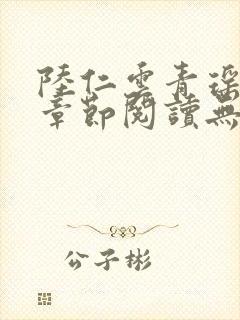 陸仁雲青瑶
章節閱讀無
公子彬